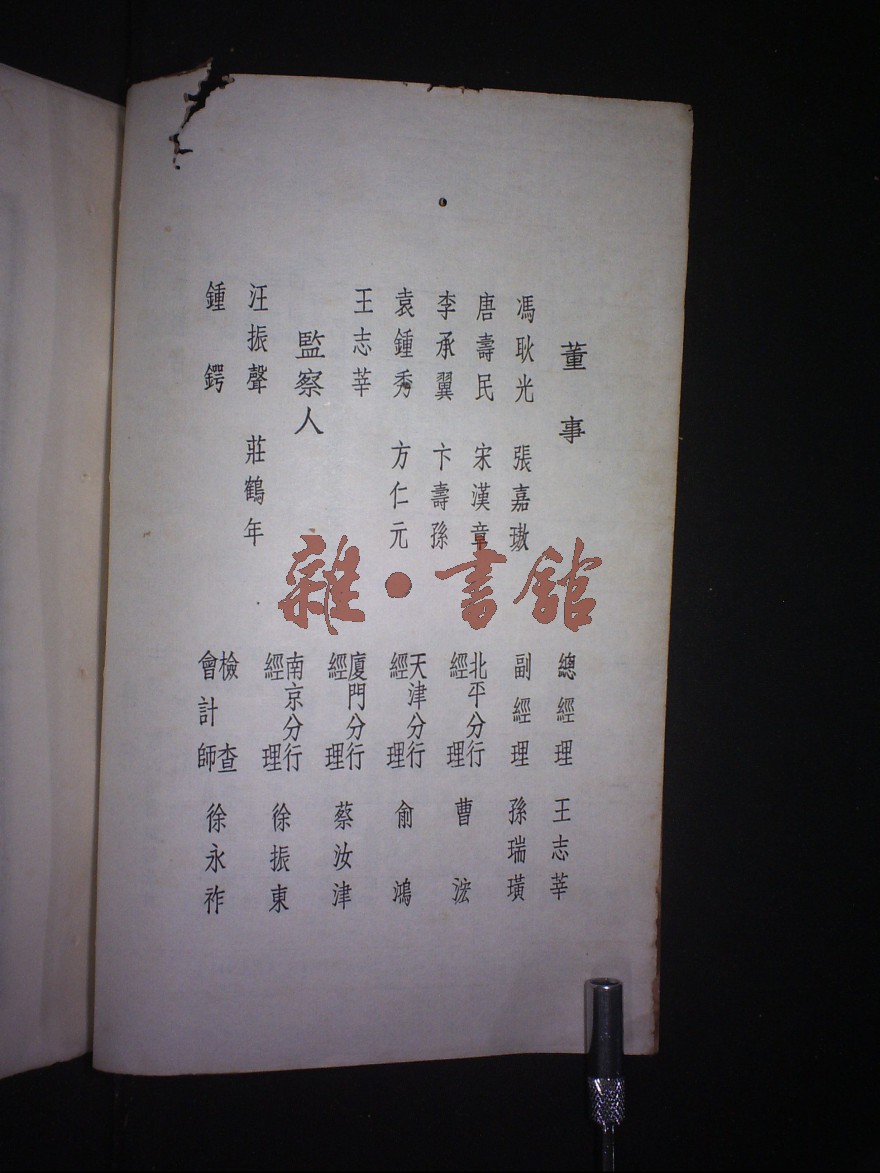 董事
馮耿光 張嘉璈
唐壽民 宋漢章
李承翼 卞壽孫
袁鍾秀 方仁元
王志莘
監察人
汪振聲 莊鶴年
鍾鍔
總經理 王志莘
副經理 孫瑞璜
北平分行經理 曹浤
天津分行經理 俞鴻
廈門分行經理 蔡汝津
南京分行經理 徐振東
檢查會計師 徐永祚
雜·書館